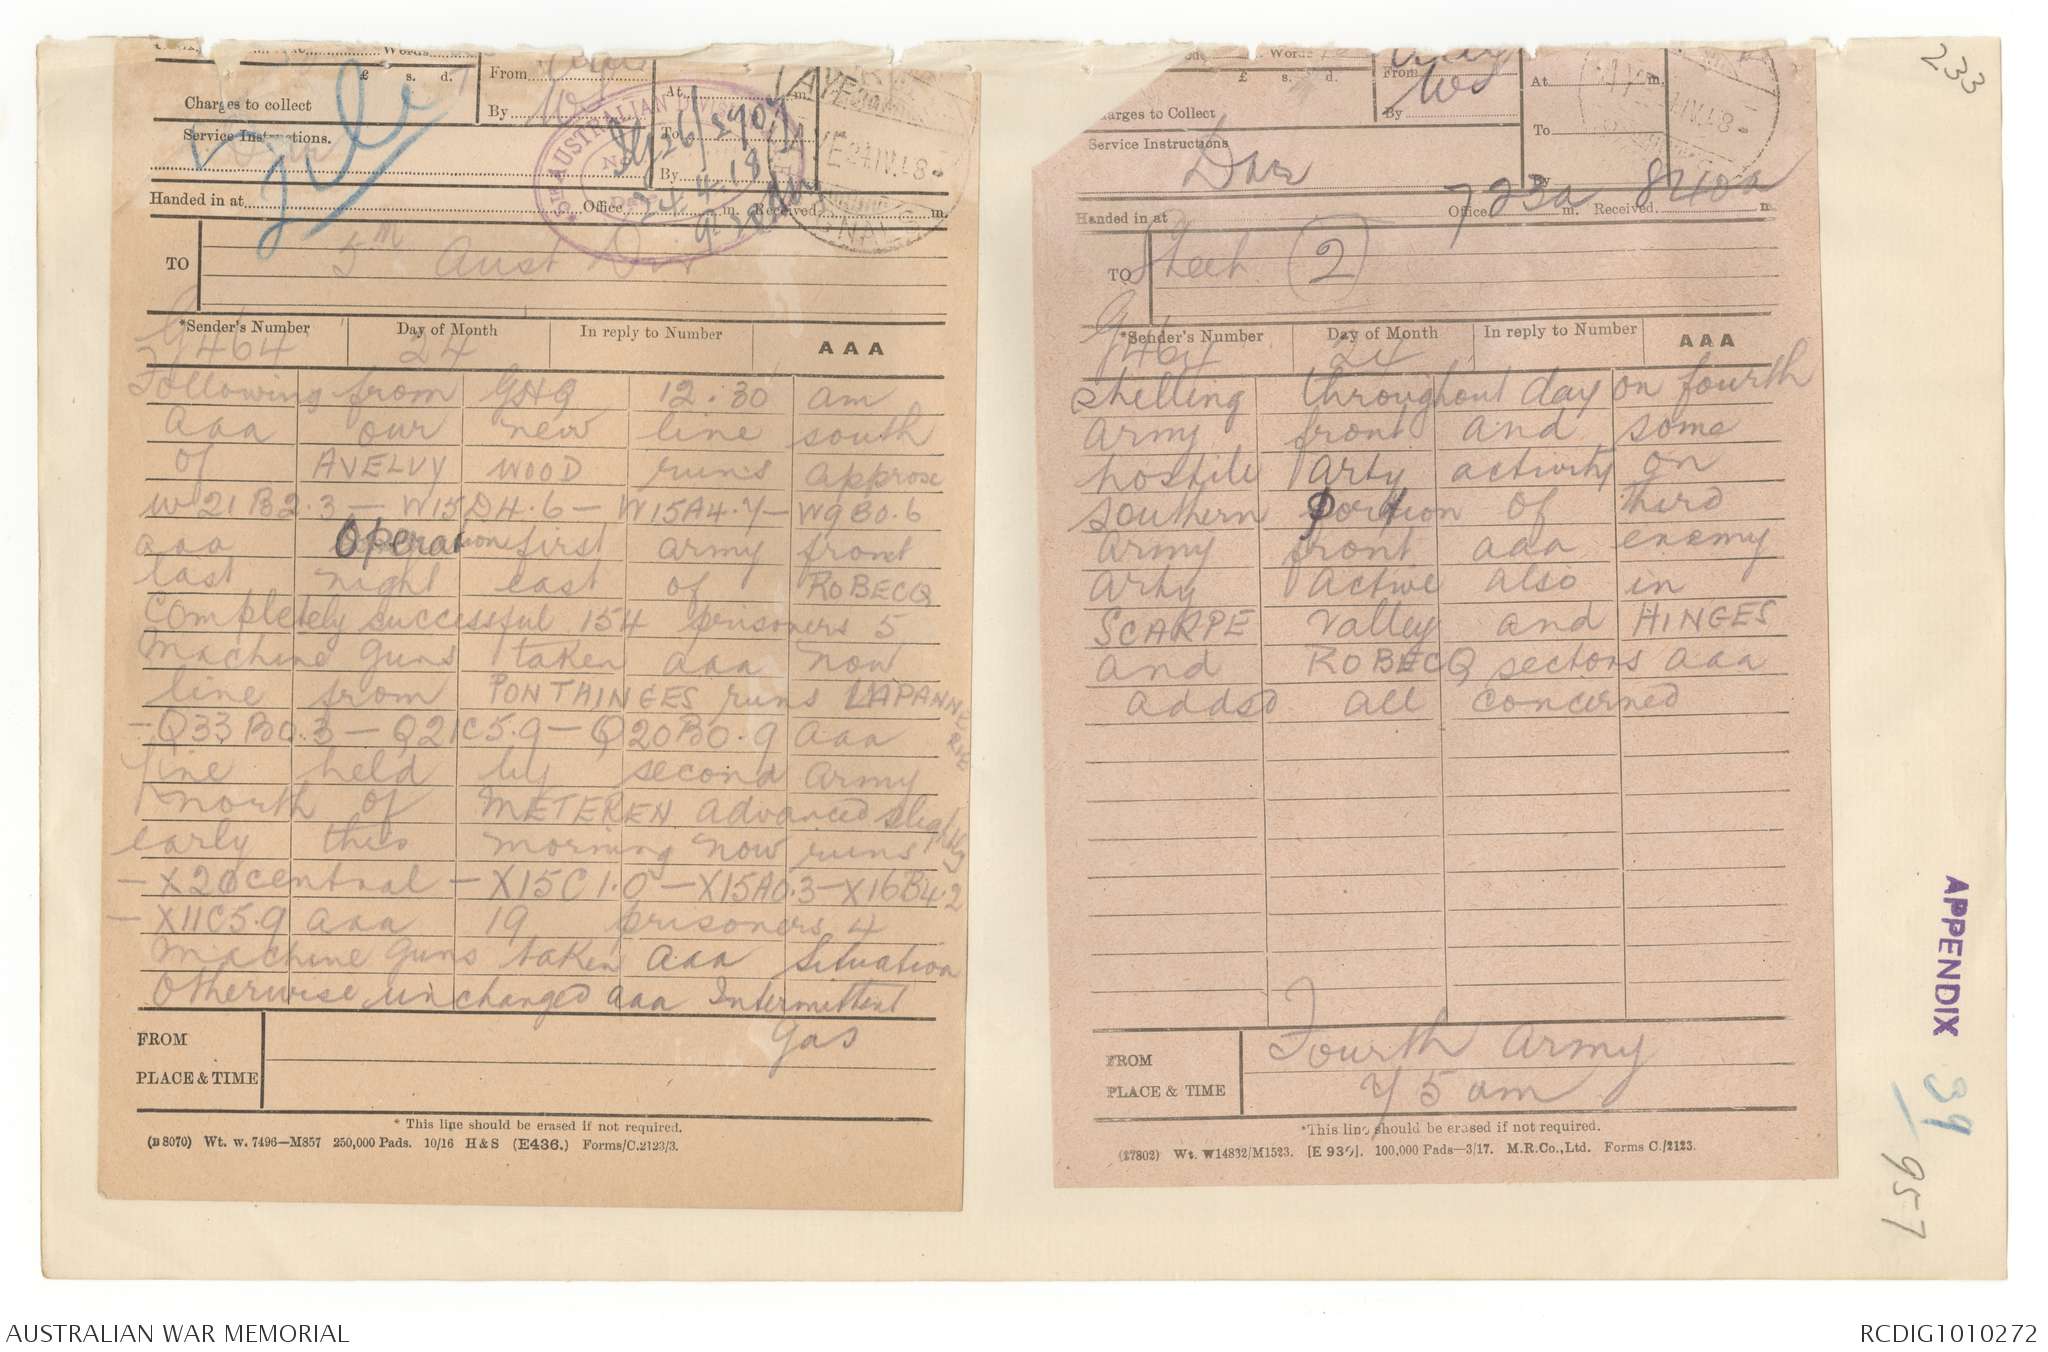 233
Words
£ s. d.
Charges to collect
Service Instructions.
From
By
At m.
To
By
5TH AUSTRALIAN DIVISION
No.
24.4.18
Handed in at Office m. Received m.
TO 5th Aust Div
*Sender's Number Day of Month In reply to Number AAA
G464 24
Following from GHQ 12.30 am
aaa our new line south
of AVELVY WOOD runs approx
W21B2.3 - W15D4.6 - W15A4.7 - W9B0.6
aaa Operations first army front
last night east of ROBECQ
completely successful 154 prisoners 5
machine guns taken aaa now
line from PONTHINGES runs LAPANNERIE
- Q33B0.3 - Q21C5.9 - Q20B0.9 aaa
line held by second army
north of METEREN advanced slightly
early this morning now runs
- X20central - X15C1.0 - X15A0.3 - X16B4.2
- X11C5.9 aaa 19 prisoners 4
machine guns taken aaa Situation
otherwise unchanged aaa Intermittent
Gas
FROM
PLACE & TIME
* This line should be erased if not required.
(B 8070) Wt. w. 7496—M857 250,000 Pads. 10/16 H & S (E436.) Forms/C.2123/3.
Words
£ s. d.
Charges to Collect
Service Instructions
From
By
At m.
To
By
Handed in at Office 723a m. Received 840a m.
TO Sheet (2)
*Sender's Number Day of Month In reply to Number AAA
G464 24
shelling throughout day on fourth
army front and some
hostile arty activity on
southern portion of third
army front aaa enemy
arty active also in
SCARPE valley and HINGES
and ROBECQ sectors aaa
addsd all concerned
FROM Fourth Army
PLACE & TIME 75 am
*This line should be erased if not required.
(27802) Wt. W14832/M1523. [E 930]. 100,000 Pads—3/17. M.R.Co.,Ltd. Forms C./2123.
APPENDIX 39
957
AUSTRALIAN WAR MEMORIAL
RCDIG1010272